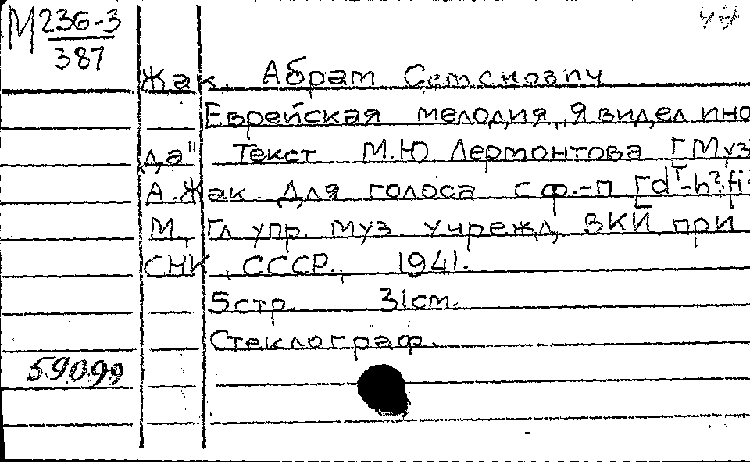 М 236-3
387
Жак, Абрам Семенович
Еврейская мелодия „Я видел ино
да" Текст М.Ю Лермонтова [Муз
А.Жак. Для голоса с ф.-п
М., Гл упр. муз. учрежд, ВКИ при
СНК СССР, 1941.
5 стр. 31 см.
Стеклограф.
59099